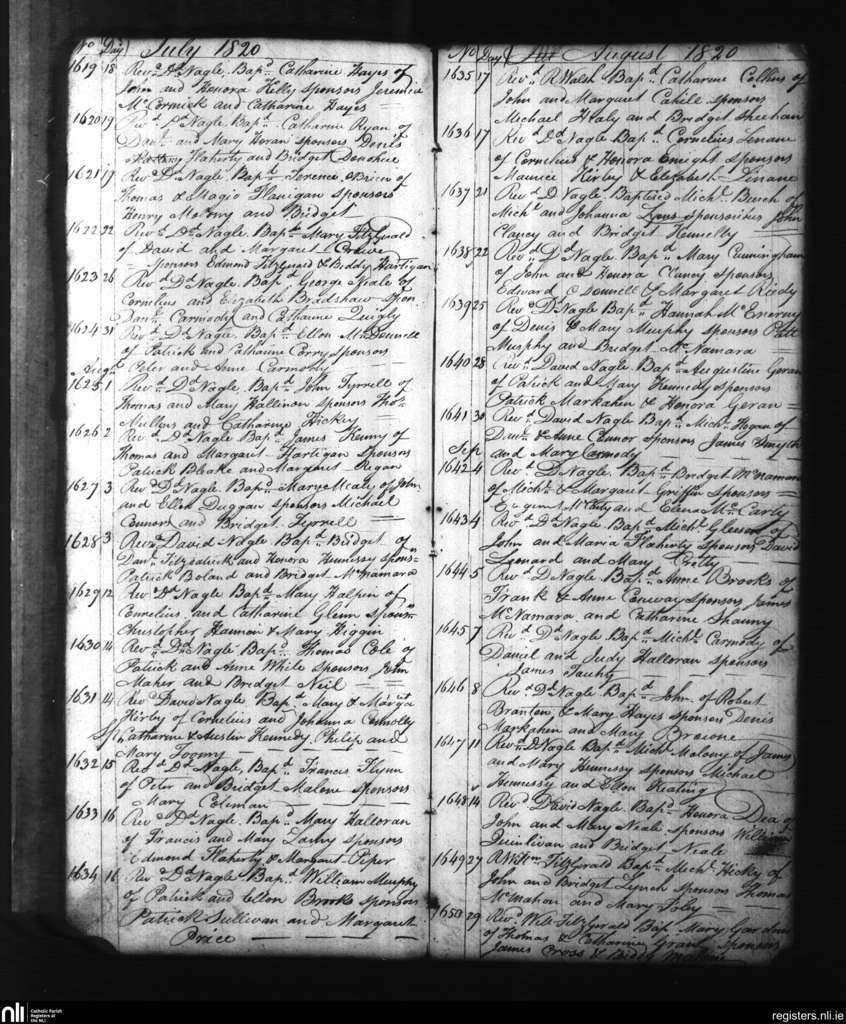 No Day July 1820
1619 18 Revd Dd Nagle Bapd Catharine Hayes of
John and Honora Kelly sponsors Jeremia
McCormick and Catharine Hayes
1620 19 Revd Dd Nagle Bapd Catharine Ryan of
Danl and Mary Horan sponsors Denis
Flaherty and Bridget Donohue
1621 19 Revd Dd Nagle Bapd Terence OBrien of
Thomas & Magie Flanigan Sponsors
Henry and Bridget
1622 22 Revd Dd Nagle Bapd Mary FitzGerald
of David and Margaret Crowe
Sponsors Edmond Fitzgerald & Biddy Hartigan
1623 26 Revd Dd Nagle Bapd George Neale of
Cornelius and Elizabeth Bradshaw Spon
Danl Carmody and Catharine Quigly
1624 31 Revd Dd Nagle Bapd Ellen McDonnell
of Patrick and Catharine Corry sponsors
Peter and Anne Carmody
Augt
1625 1 Revd Dd Nagle Bapd John Tyrrell of
Thomas and Mary Hallinon sponsors Thos
Mullens and Catharine Hickey
1626 2 Revd Dd Nagle Bapd James Kenny of
Thomas and Margaret Hartigan sponsors
Patrick Blake and Margaret Regan
1627 3 Revd Dd Nagle Bapd Mary Meale of John
and Ellen Duggan sponsors Michael
Connors and Bridget Tyrrell
1628 3 Revd David Nagle Bapd Bridget of
Danl Fitzpatrick and Honora Hennessy spons
Patrick Boland and Bridget McNamara
1629 12 Revd Dd Nagle Bapd Mary Halpen of
Cornelius and Catharine Glenn Sponsrs
Christopher Hannon & Mary Higgin
1630 14 Revd Dd Nagle Bapd Thomas Cole of
Patrick and Anne White sponsors John
Maher and Bridget Neil
1631 14 Revd David Nagle Bapd Mary & Margt
Kirby of Cornelius and Johanna Connolly
Sp Catharine & Austin Kennedy Philip and
Mary Toomy
1632 15 Revd Dd Nagle Bapd Francis Flynn
of Peter and Bridget Malone sponsors
Mary Coleman
1633 16 Revd Dd Nagle Bapd Mary Halloran
of Francis and Mary sponsors
Edmond Flaherty & Margaret Piper
1634 16 Revd Dd Nagle Bapd William Murphy
of Patrick and Ellen Brooks sponsors
Patrick Sullivan and Margaret
Price
No Day August 1820
1635 17 Revd R Walsh Bapd Catharine Collins of
John and Margaret Cahill sponsors
Michael Healy and Bridget Sheehan
1636 17 Revd Dd Nagle Bapd Cornelius Linane
of Cornelius & Honora Enright sponsors
Maurice Kirby & Elizabeth Linane
1637 21 Revd D Nagle Baptised Michl Burch of
Michl and Johanna Lyons Sponsoribus John
Clancy and Bridget Kennelly
1638 22 Revd Dd Nagle Bapd Mary Cunningham
of John and Honora Clancy sponsors
Edward O Donnell & Margaret Reidy
1639 25 Revd D Nagle Bapd Hannah McEnerney
of Denis & Mary Murphy sponsors Patt
Murphy and Bridget McNamara
1640 28 Revd David Nagle Bapd Augustine Geran
of Patrick and Mary Kennedy sponsors
Patrick Markahan & Honora Geran
1641 30 Revd David Nagle Bapd Michl Hogan of
Danl & Anne Connor sponsors James Smyth
and Mary Carmody
Sep
1642 4 Revd D Nagle Bapd Bridget McNamara
of Michl & Margaret Griffin Sponsors
Eugene McCarty and Elena McCarty
1643 4 Revd Dd Nagle Bapd Michl Gleeson of
John and Maria Flaherty sponsors David
Leonard and Mary
1644 5 Revd D Nagle Bapd Anne Brooks of
Frank & Anne Conway sponsors James
McNamara and Catharine Shauny
1645 7 Revd Dd Nagle Bapd Michl Carmody of
Daniel and Judy Halloran sponsors
James
1646 8 Revd Dd Nagle Bapd John of Robert
Branton & Mary Hayes sponsors Denis
Markahan and Mary Browne
1647 11 Revd D Nagle Bapd Michl Malony of James
and Mary Hennessy sponsors Michael
Hennessy and Ellen Keating
1648 14 Revd David Nagle Bapd Honora Dea of
John and Mary Neale sponsors William
Quinlivan and Bridget Neale
1649 27 R Willm FitzGerald Bapd Michl Hickey of
John and Bridget Lynch sponsors Thomas
McMahan and Mary Foley
1650 29 Revd Will FitzGerald Bap Mary
of Thomas & Catharine Grant sponsors
James Cross & Biddy Malone
nli Catholic Parish
Registers at
the NLI
registers.nli.ie